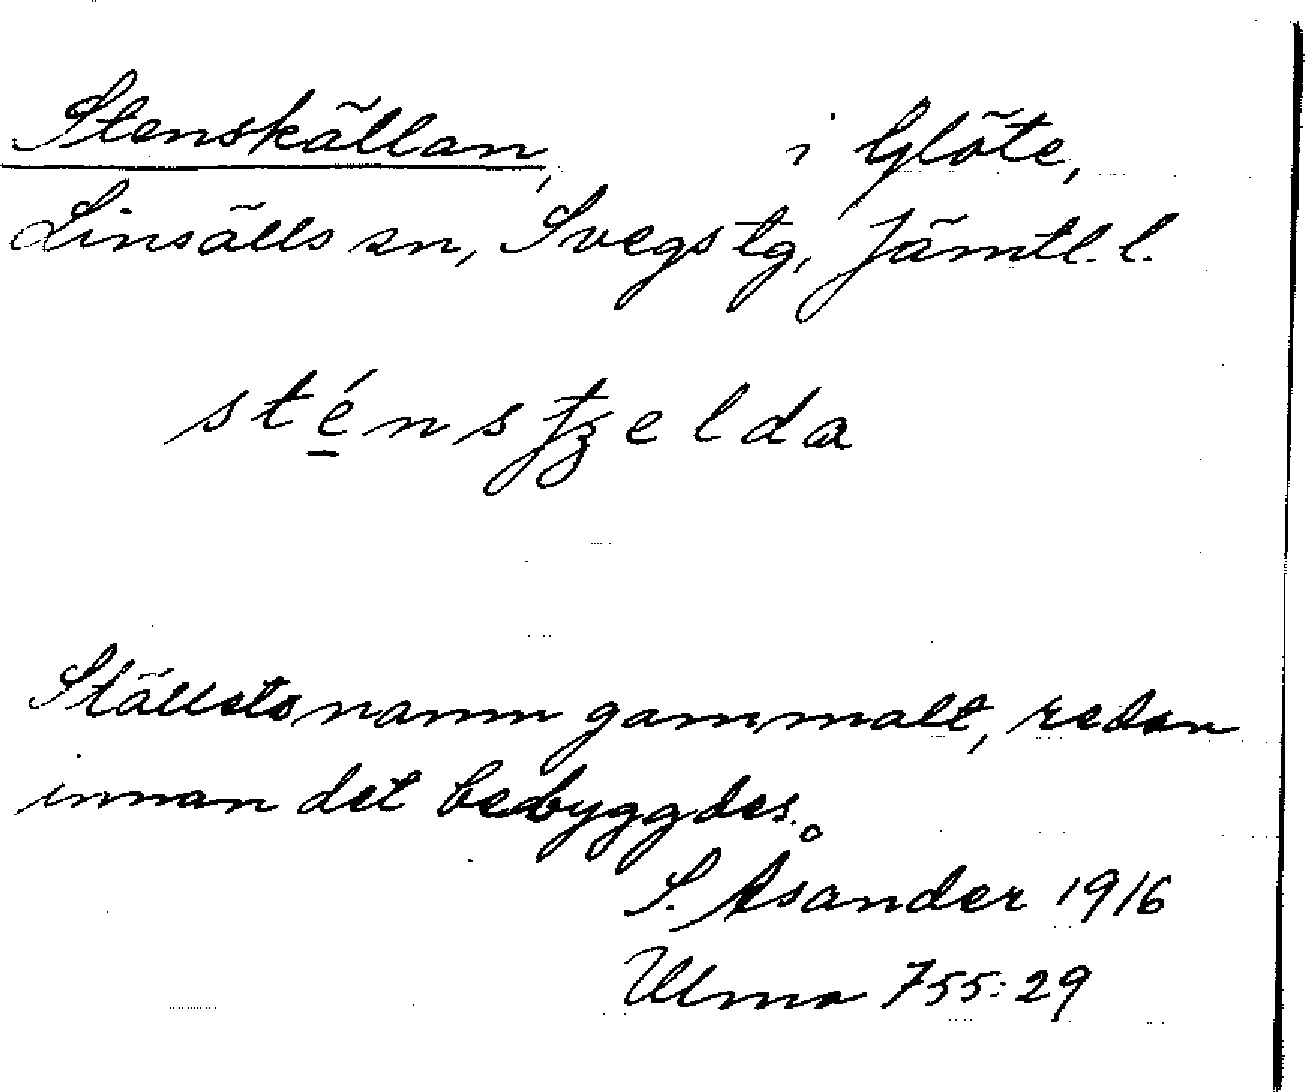 Stenskällan, i Glöte,
Linsälls sn, Svegs tg, Jämtl. l.
sté̲nstʒelda
Ställets namn gammalt, redan
innan det bebyggdes.
S. Åsander 1916
Ulma 755:29